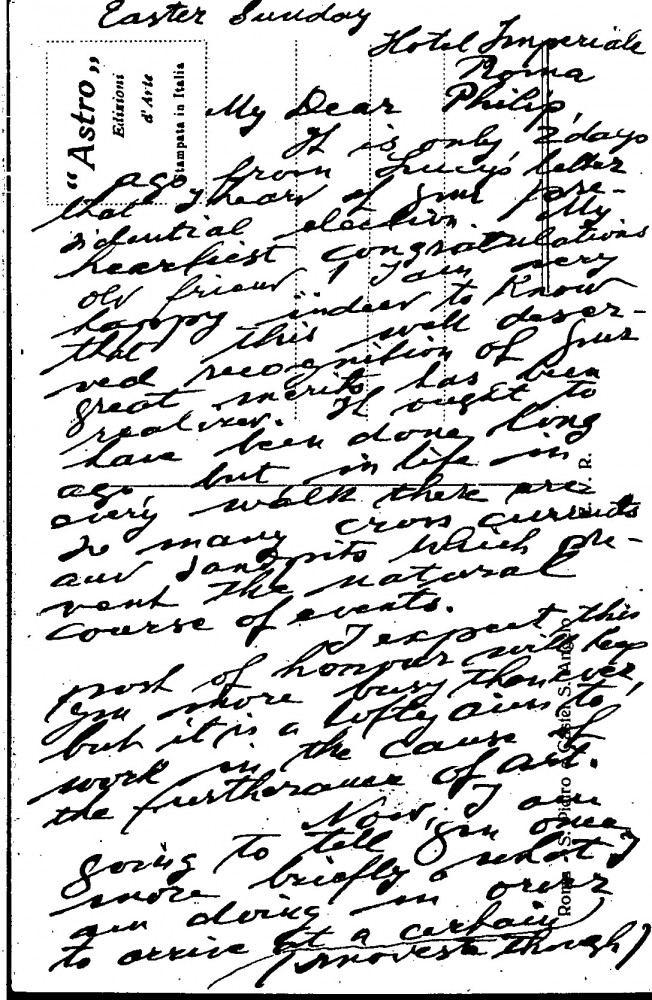 Easter Sunday
Hotel Imperiale
Roma
My Dear Philip,
It is only 2 days
ago from Lucy's letter
that I hear of your pre-
sidential election. My
heartiest congratulations
old friend! I am very
happy indeed to know
that this well deser-
ved recognition of your
great merits has been
realized. It ought to
have been done long
ago, but in life in
every walk there are
so many cross currents
and sandpits which pre-
vent the natural
course of events.
I expect this
post of honour will keep
you more busy than ever,
but it is a lofty aim to
work in the cause of
the furtherance of art.
Now, I am
going to tell you once
more briefly what I
am doing in order
to arrive at a certain
(modest though)
"Astro"
Edizioni
d'Arte
Stampata in Italia
R.
Roma S. Pietro e Castel S. Angelo